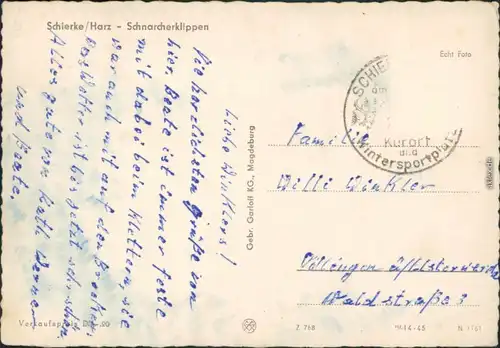 Schierke/Harz - Schnarcherklippen
Echt Foto
Liebe Winklers!
Die herzlichsten Grüße von
hier. Beate ist immer feste
mit dabei beim Klettern, sie
war auch mit auf den Brocken.
Das Wetter ist bis jetzt sehr schön.
Alles gute von Kätl Werner
und Beate.
SCHIE
am
Kurort
und
Wintersportplatz
Familie
Willi Winkler
Waldstraße 3
Gebr. Garloff KG., Magdeburg
Verkaufspreis DM -.20
Z 768
IV-14-45
N 1761